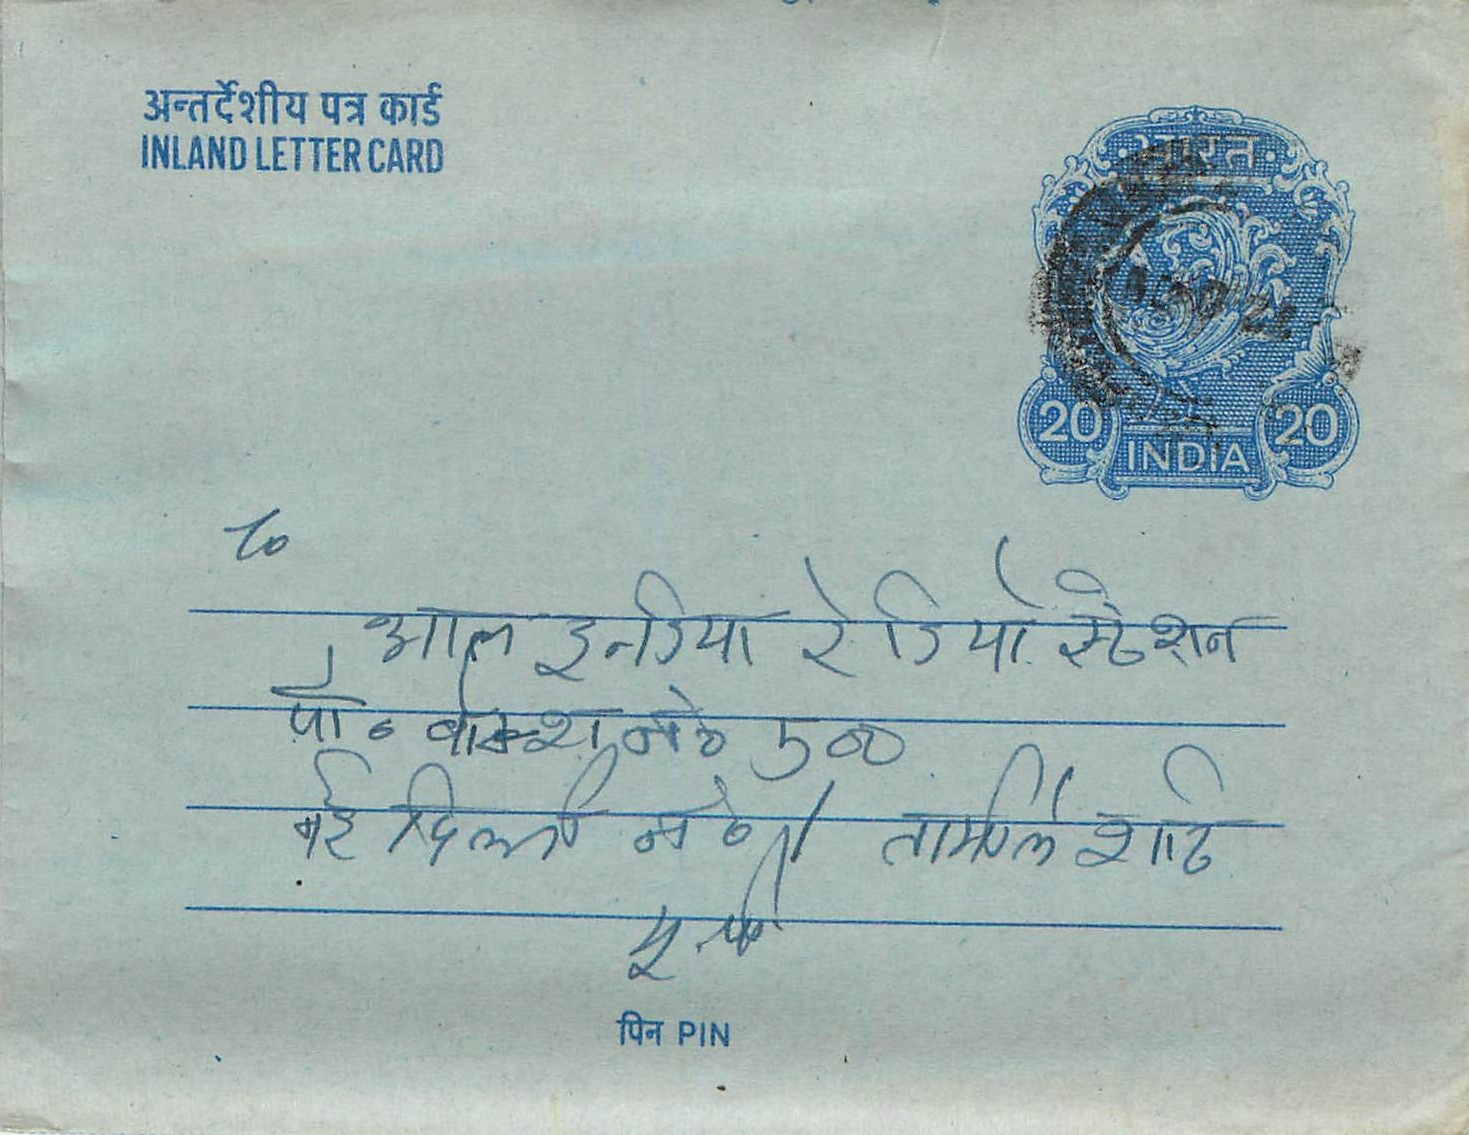 अन्तर्देशीय पत्र कार्ड
INLAND LETTER CARD
भारत
20 20
INDIA
To
आल इन्डिया रेडियो स्टेशन
पो० बाक्श नं०
नई दिल्ली नं०
पिन PIN